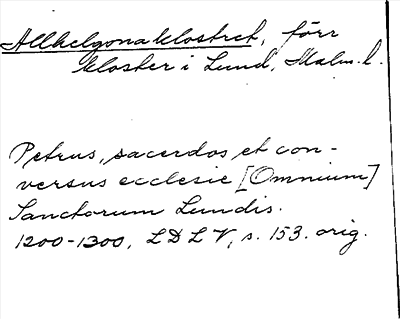 Allhelgonaklostret, förr
kloster i Lund, Malm. l.
Petrus, sacerdos et con-
versus ecclesie [Omnium]
Sanctorum Lundis.
1200-1300, L D L V, s. 153. orig.